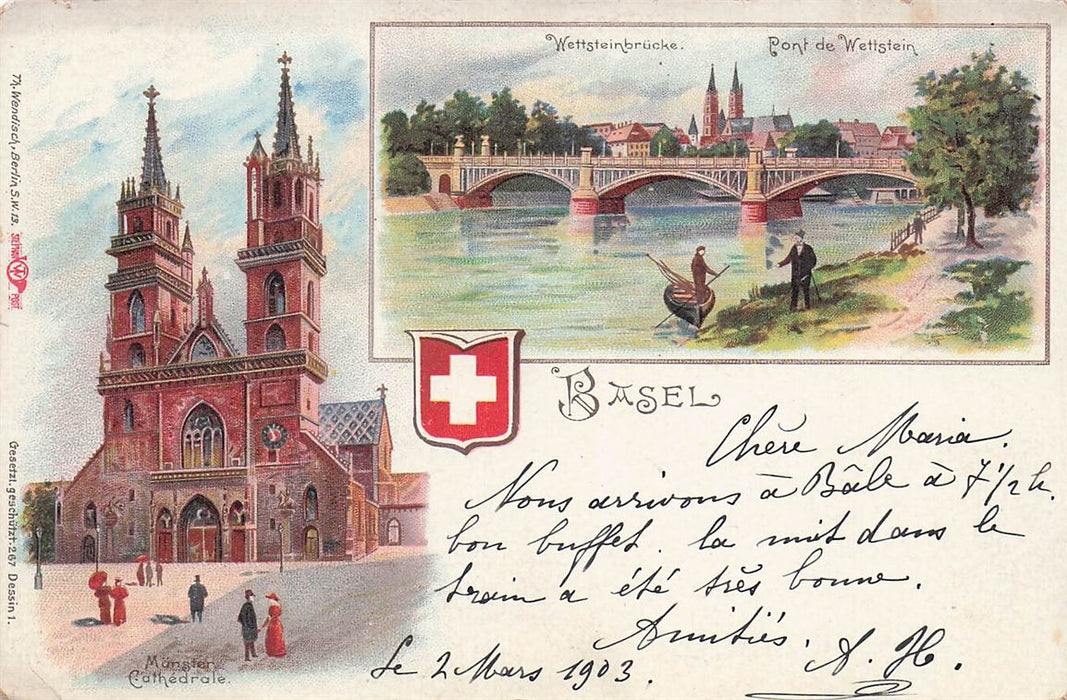 Wettsteinbrücke. Pont de Wettstein
Th. Wendisch, Berlin S.W. 13.
W
POST
Gesetzl. geschützt. 267 Dessin 1.
BASEL
Münster.
Cathédrale.
Chère Maria.
Nous arrivons à Bâle à 7 1/2 h.
bon buffet. la nuit dans le
train a été très bonne.
Amitiés.
A. H.
Le 2 Mars 1903.